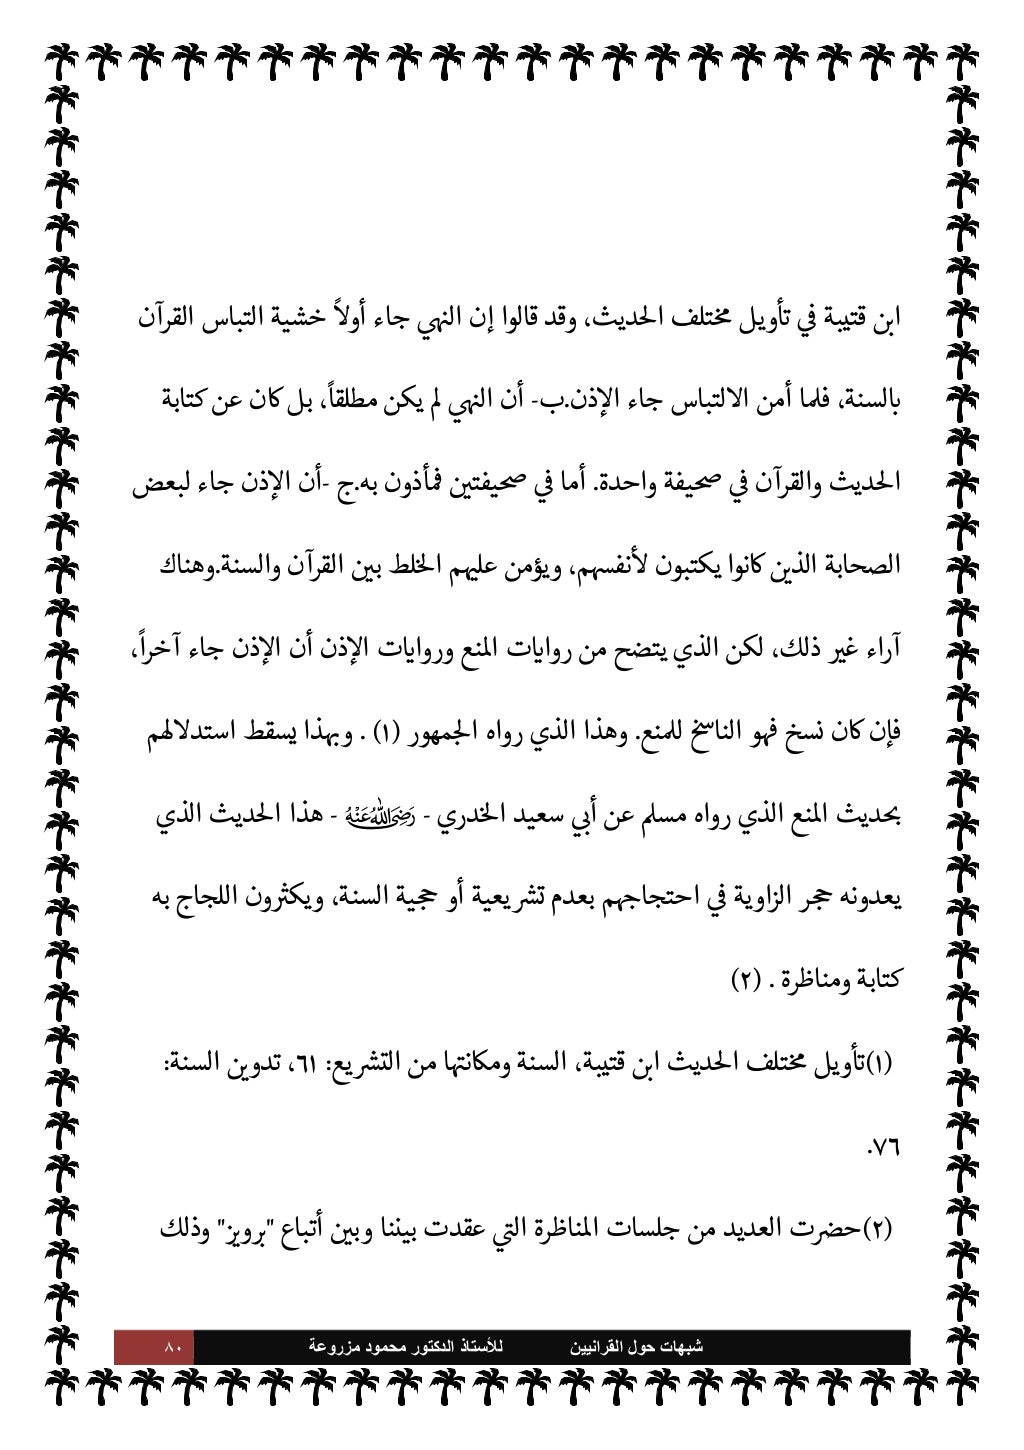 ابن قتيبة في تأويل مختلف الحديث، وقد قالوا إن النهي جاء أولاً خشية التباس القرآن
بالسنة، فلما أمن الالتباس جاء الإذن.ب- أن النهي لم يكن مطلقاً، بل كان عن كتابة
الحديث والقرآن في صحيفة واحدة. أما في صحيفتين فمأذون به.ج -أن الإذن جاء لبعض
الصحابة الذين كانوا يكتبون لأنفسهم، ويؤمن عليهم الخلط بين القرآن والسنة.وهناك
آراء غير ذلك، لكن الذي يتضح من روايات المنع وروايات الإذن أن الإذن جاء آخراً،
فإن كان نسخ فهو الناسخ للمنع. وهذا الذي رواه الجمهور (١) . وبهذا يسقط استدلالهم
بحديث المنع الذي رواه مسلم عن أبي سعيد الخدري - رَضِيَ اللَّهُ عَنْهُ - هذا الحديث الذي
يعدونه حجر الزاوية في احتجاجهم بعدم تشريعية أو حجية السنة، ويكثرون اللجاج به
كتابة ومناظرة . (٢)
(١)تأويل مختلف الحديث ابن قتيبة، السنة ومكانتها من التشريع: ٦١، تدوين السنة:
٧٦.
(٢)حضرت العديد من جلسات المناظرة التي عقدت بيننا وبين أتباع "برويز" وذلك
شبهات حول القرانيين للأستاذ الدكتور محمود مزروعة ٨٠